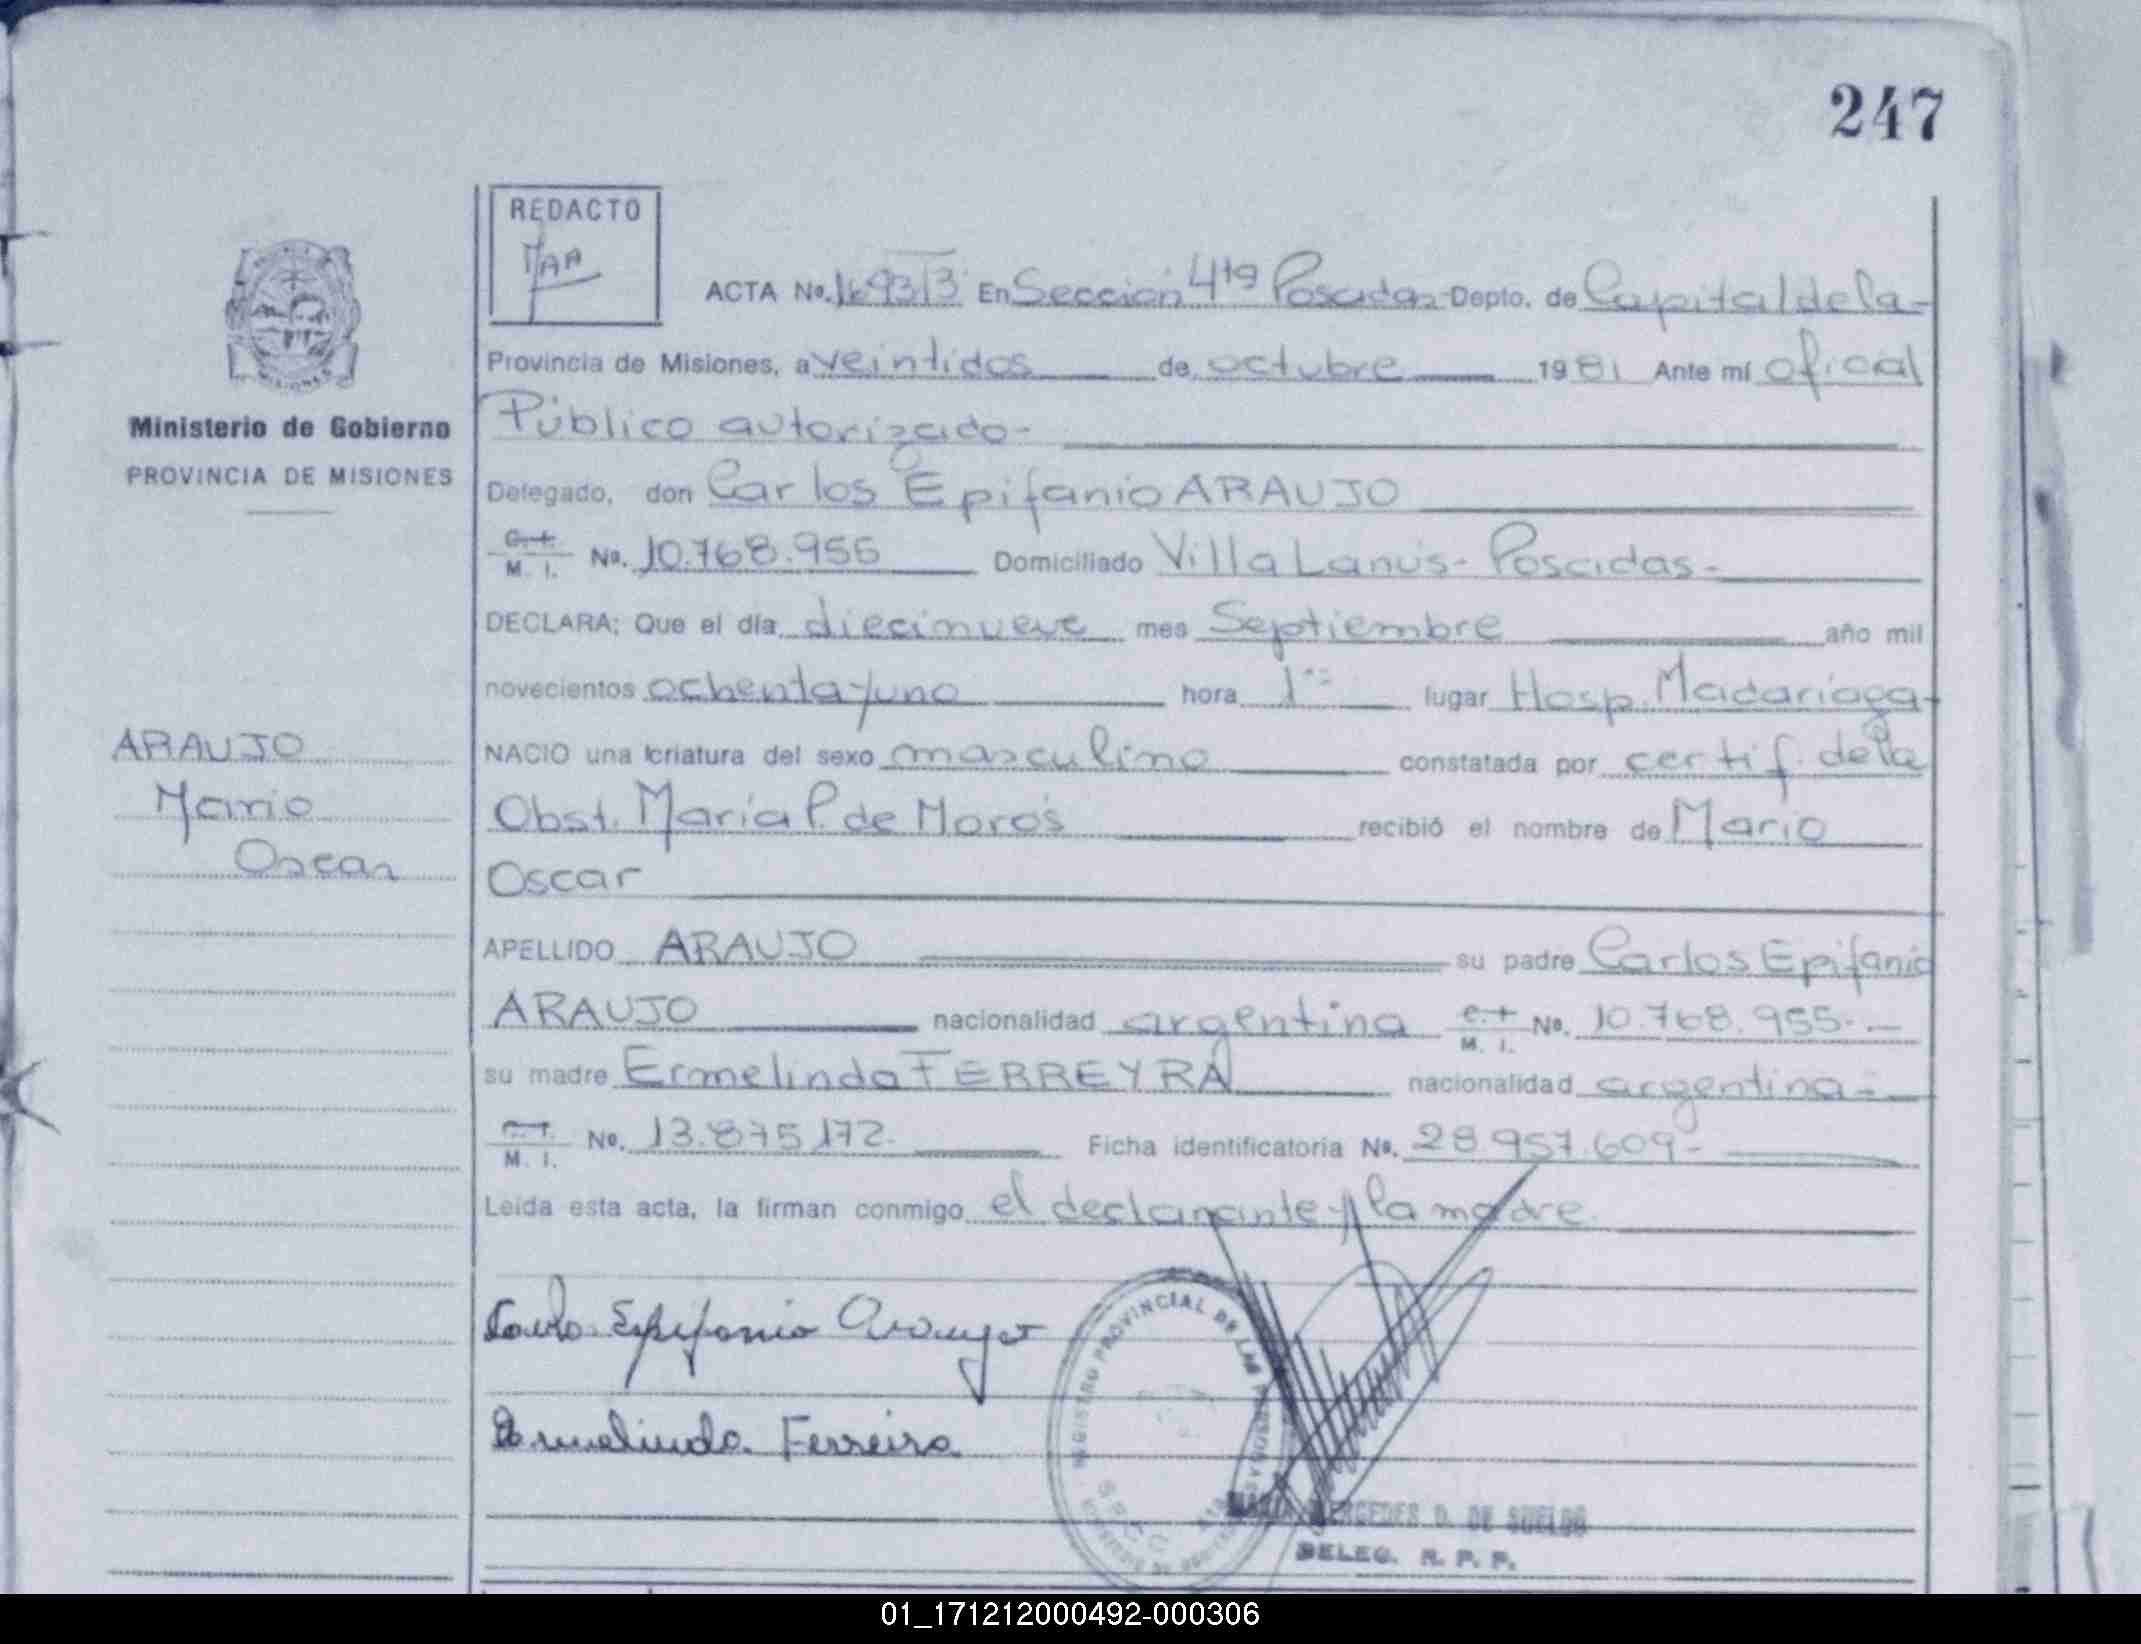 247
REDACTO
ACTA No. En Sección 4ta Posadas- Depto. de Capital de la-
Provincia de Misiones, a veintidos de octubre 1981 Ante mí oficial
Ministerio de Gobierno
PROVINCIA DE MISIONES
Público autorizado-
Delegado, don Carlos Epifanio ARAUJO
M. I. No. 10.768.955 Domiciliado Villa Lanús- Posadas-
DECLARA: Que el día diecinueve mes Septiembre año mil
novecientos ochenta y uno hora 1 lugar Hosp. Madariaga-
ARAUJO
Mario
Oscar
NACIO una criatura del sexo masculino constatada por certif. de la
Obst. María P. de Moros recibió el nombre de Mario
Oscar
APELLIDO ARAUJO su padre Carlos Epifanio
ARAUJO nacionalidad argentina M. I. No. 10.768.955.-
su madre Ermelinda FERREYRA nacionalidad argentina-
M. I. No. 13.875.172. Ficha identificatoria No. 28.957.609-
Leída esta acta, la firman conmigo el declarante y la madre.
Carlo Epifanio Araujo
REGISTRO PROVINCIAL DE LAS PERSONAS
Ermelinda Ferreira
MERCEDES D. DE
DELEG. R. P. P.
01_171212000492-000306